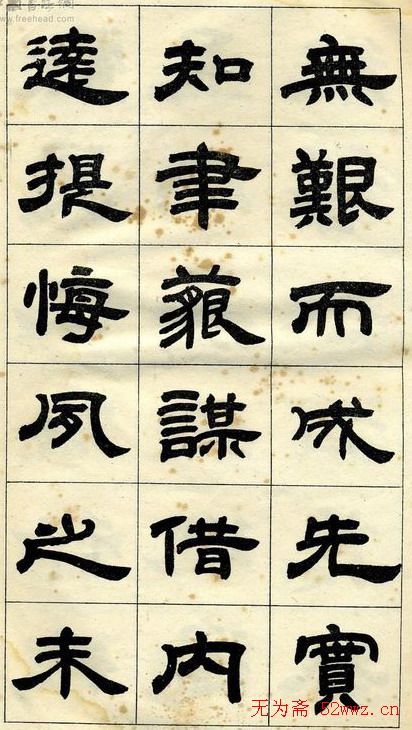 無艱而成先實
知聿藐謀借内
達提悔夙之未
www.freehead.com
无为斋 52wwz.cn